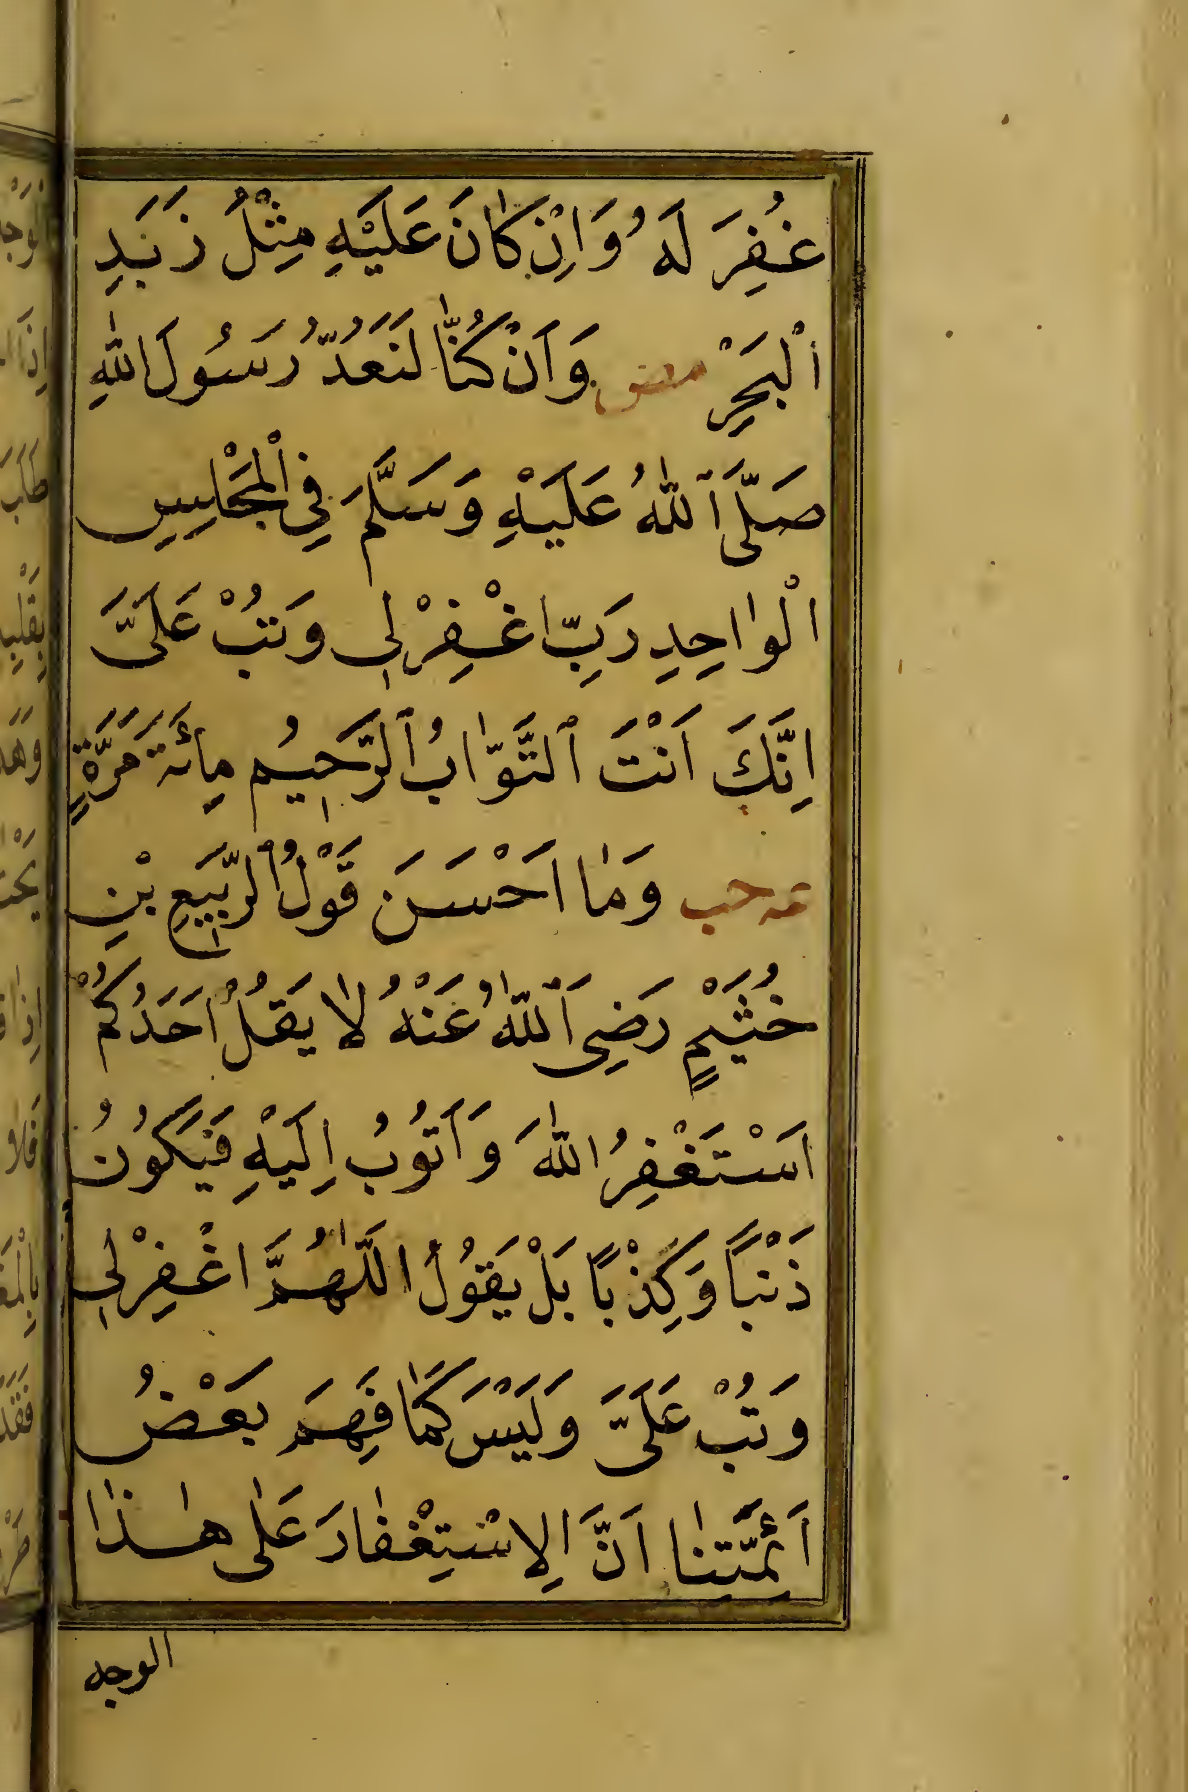 غُفِرَ لَهُ وَاِنْ كَانَ عَلَيْهِ مِثْلُ زَبَدِ
اْلبَحَرِْ مص وَاَنْ كُنَّا لَنَعَدُّ رَسُولَ اللّٰهِ
صَلَّى اللّٰهُ عَلَيْهِ وَسَلَّمَ فِى الْمَجَاْلِسِ
اْلوٰاحِدِ رَبِّ اغْفِرْلِى وَتُبْ عَلَىَّ
اِنَّكَ اَنْتَ التَّوَّابُ الرَّحِيُم مِائَةَ مَرَّةٍ
عه حب وَمٰا اَحْسَنَ قَوْلُ الرَّبِيَعِ بْنِ
خُثَيْمٍ رَضِىَ اللّٰهُ عَنْهُ لاٰ يَقُلْ اَحَدُكُمْ
اَسْتَغْفِرُ اللّٰهَ وَاَتُوبُ اِلَيْهِ فَيَكُونُ
ذَنْبًا وَكَِذْبًا بَلْ يَقُولُ اللَّهُمَّ اغْفِرْلِى
وَتُبْ عَلَىَّ وَلَيْسَ كَمٰا فَهِمَ بَعْضُ
اَئِمَّتِنٰا اَنَّ الِاسْتِغْفٰارَ عَلٰى هٰذَا
الوجه